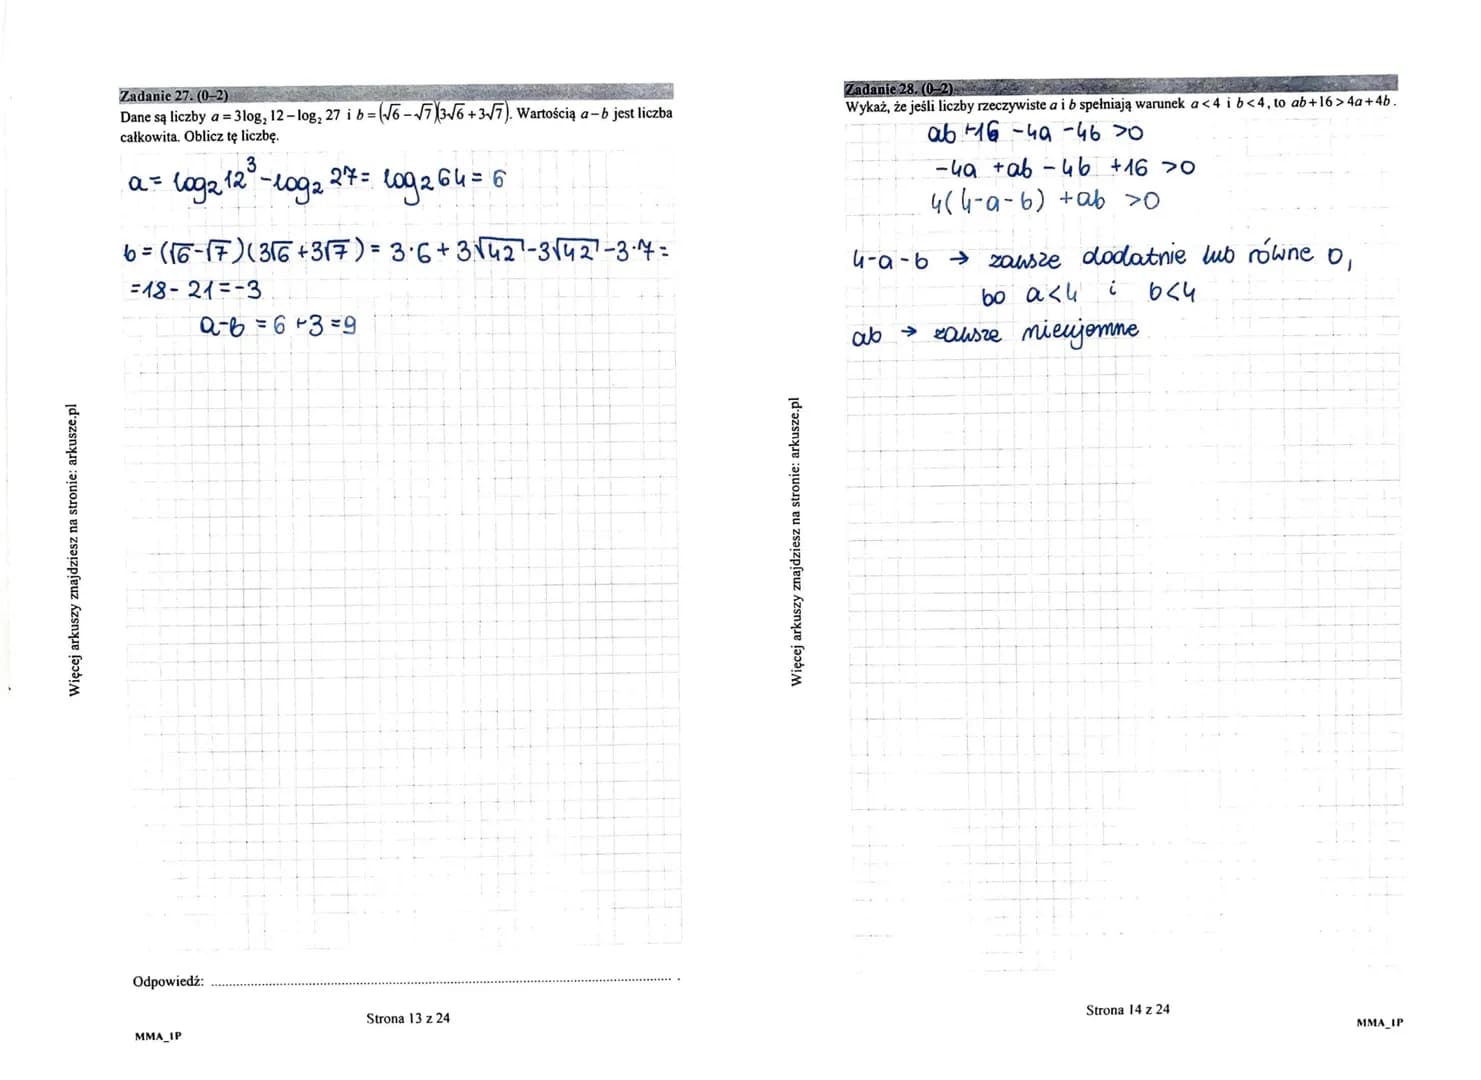 Zadanie 27. (0–2)
Dane są liczby a = 3log₂ 12 – log₂ 27 i b = (√6 – √7)(3√6 + 3√7). Wartością a – b jest liczba
całkowita. Oblicz tę liczbę.
a = log₂12³ - log₂ 27 = log₂64 = 6
b = (√6-√7)(3√6+3√7) = 3·6 + 3√42 - 3√42 - 3·7 =
= 18 - 21 = -3
a-b = 6 + 3 = 9
Odpowiedź: ....................
Strona 13 z 24
MMA_1P
Więcej arkuszy znajdziesz na stronie: arkusze.pl
Zadanie 28. (0–2)
Wykaż, że jeśli liczby rzeczywiste a i b spełniają warunek a < 4 i b < 4, to ab + 16 > 4a + 4b.
ab +16 -4a -4b >0
-4a +ab -4b +16 >0
4(4-a-b) +ab >0
4-a-b → zawsze dodatnie lub równe 0,
bo a<4 i b<4
ab → zawsze nieujemne
Strona 14 z 24
MMA_1P
Więcej arkuszy znajdziesz na stronie: arkusze.pl